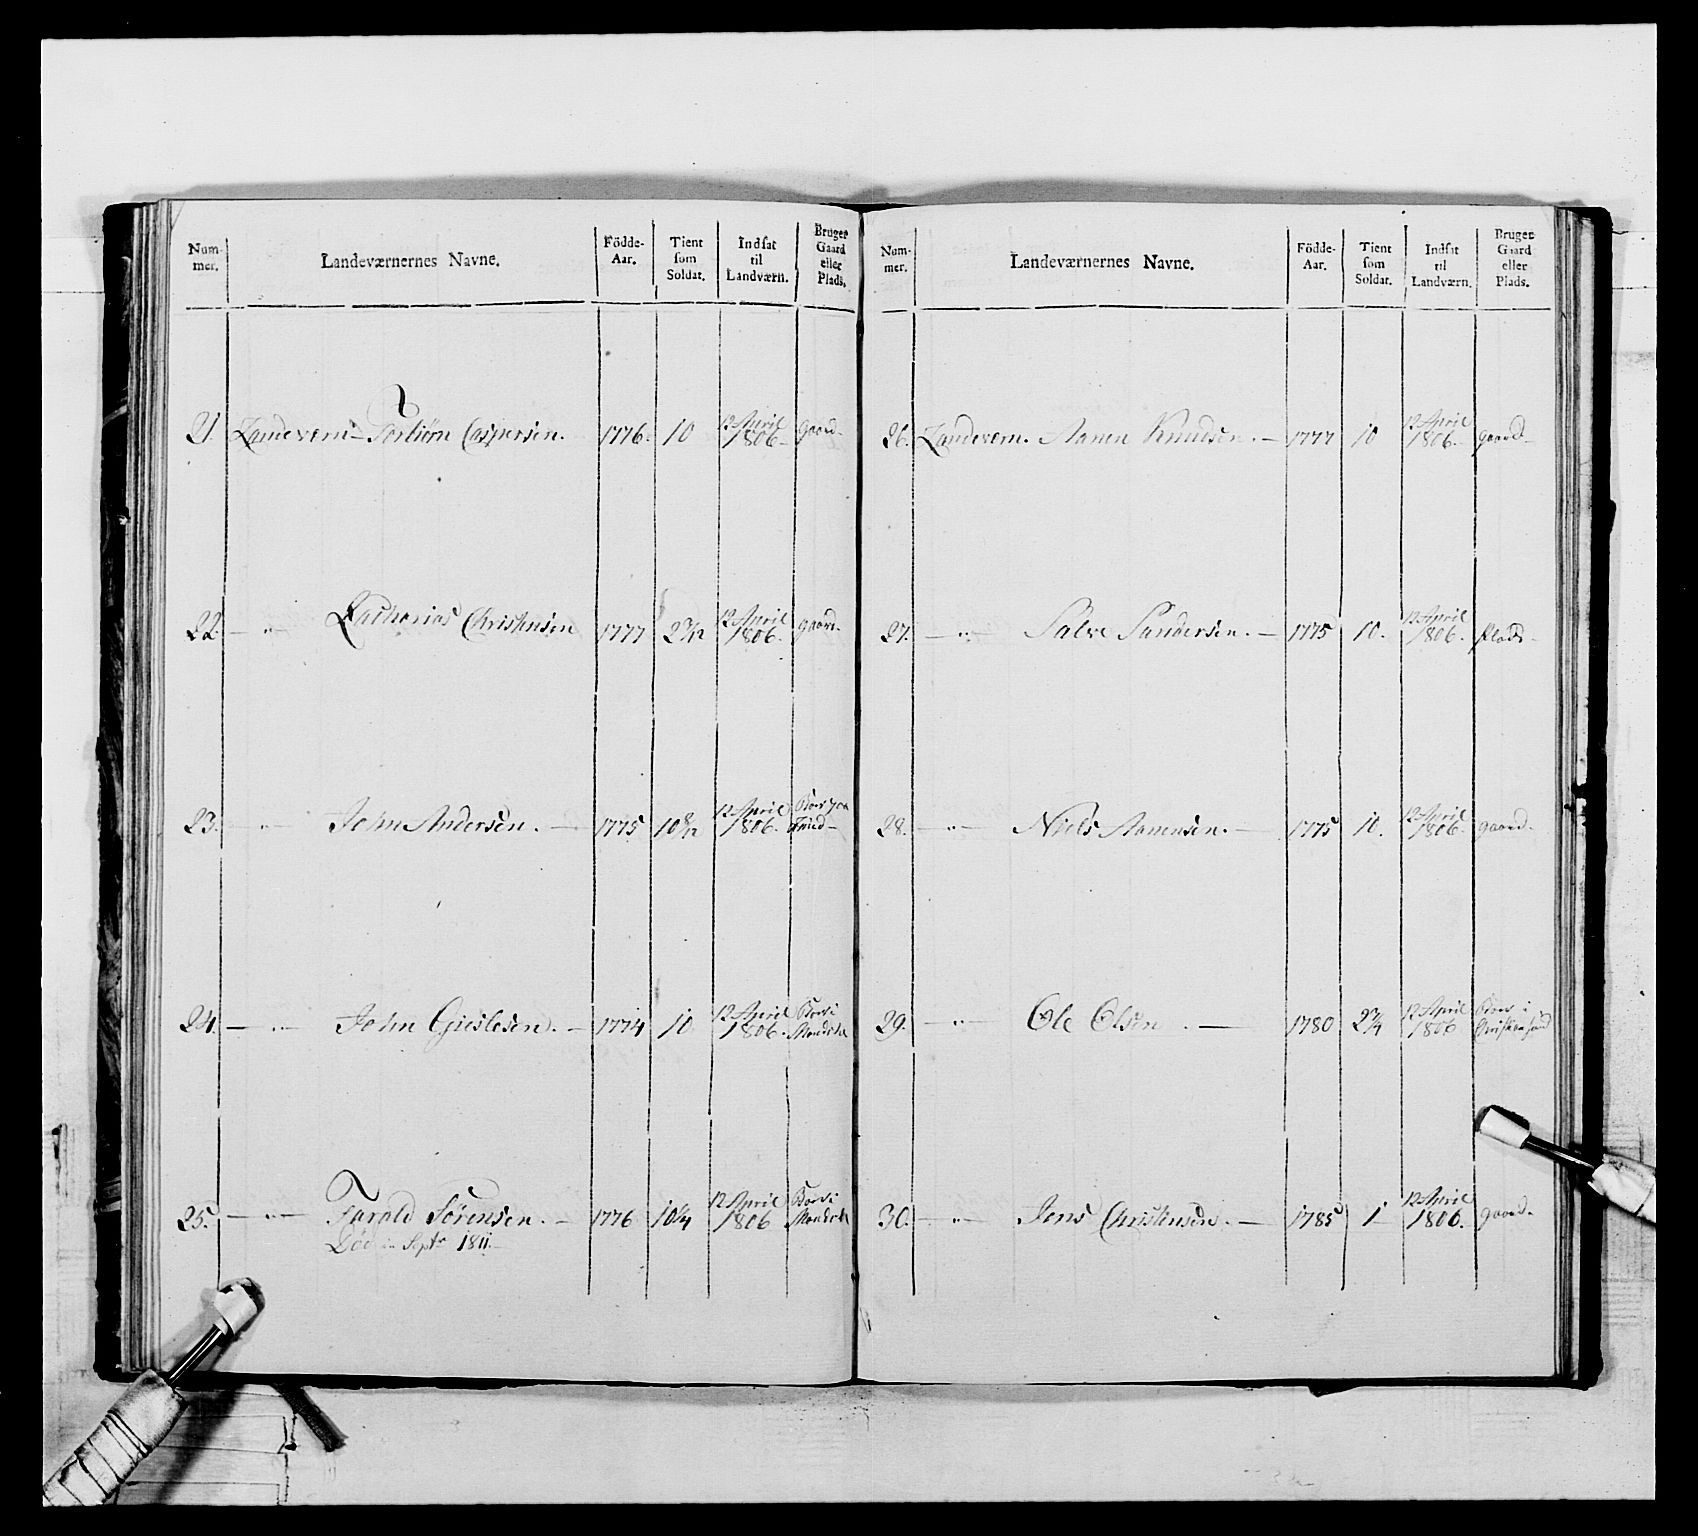 Num-mer. Landeværnernes Navne. Födde-Aar. Tient som Soldat. Indsat til Landværn. Bruger Gaard eller Plads.
21. Landevern Torbiørn Caspersen. 1776. 10 12 April 1806. gaard.
22. — " — Zacharias Christensen 1777 2 7/12 12 April 1806. gaard.
23. — " — John Andersen. — 1775 10 8/12 12 April 1806.
24. — " — John Gieslesen. — 1774 10 12 April 1806. Boer i Mandahl
25. — " — Harald Sörensen. — 1776 10 1/4 12 April 1806 Boer i Mandahl
Död in Septr 1811.
Num-mer. Landeværnernes Navne. Födde-Aar. Tient som Soldat. Indsat til Landværn. Bruger Gaard eller Plads.
26. Landevern. Aanen Knudsen. — 1777 10 12 April 1806. gaard.
27. — " — Salve Sandersen. — 1775 10. 12 April 1806. Plads.
28. — " — Niels Aanensen. — 1775 10. 12 April 1806. gaard.
29. — " — Ole Olsen. — 1780 2 3/4 12 April 1806 Boer i Christiansand
30. — " — Jens Christensen. — 1785 1 12 April 1806. gaard.